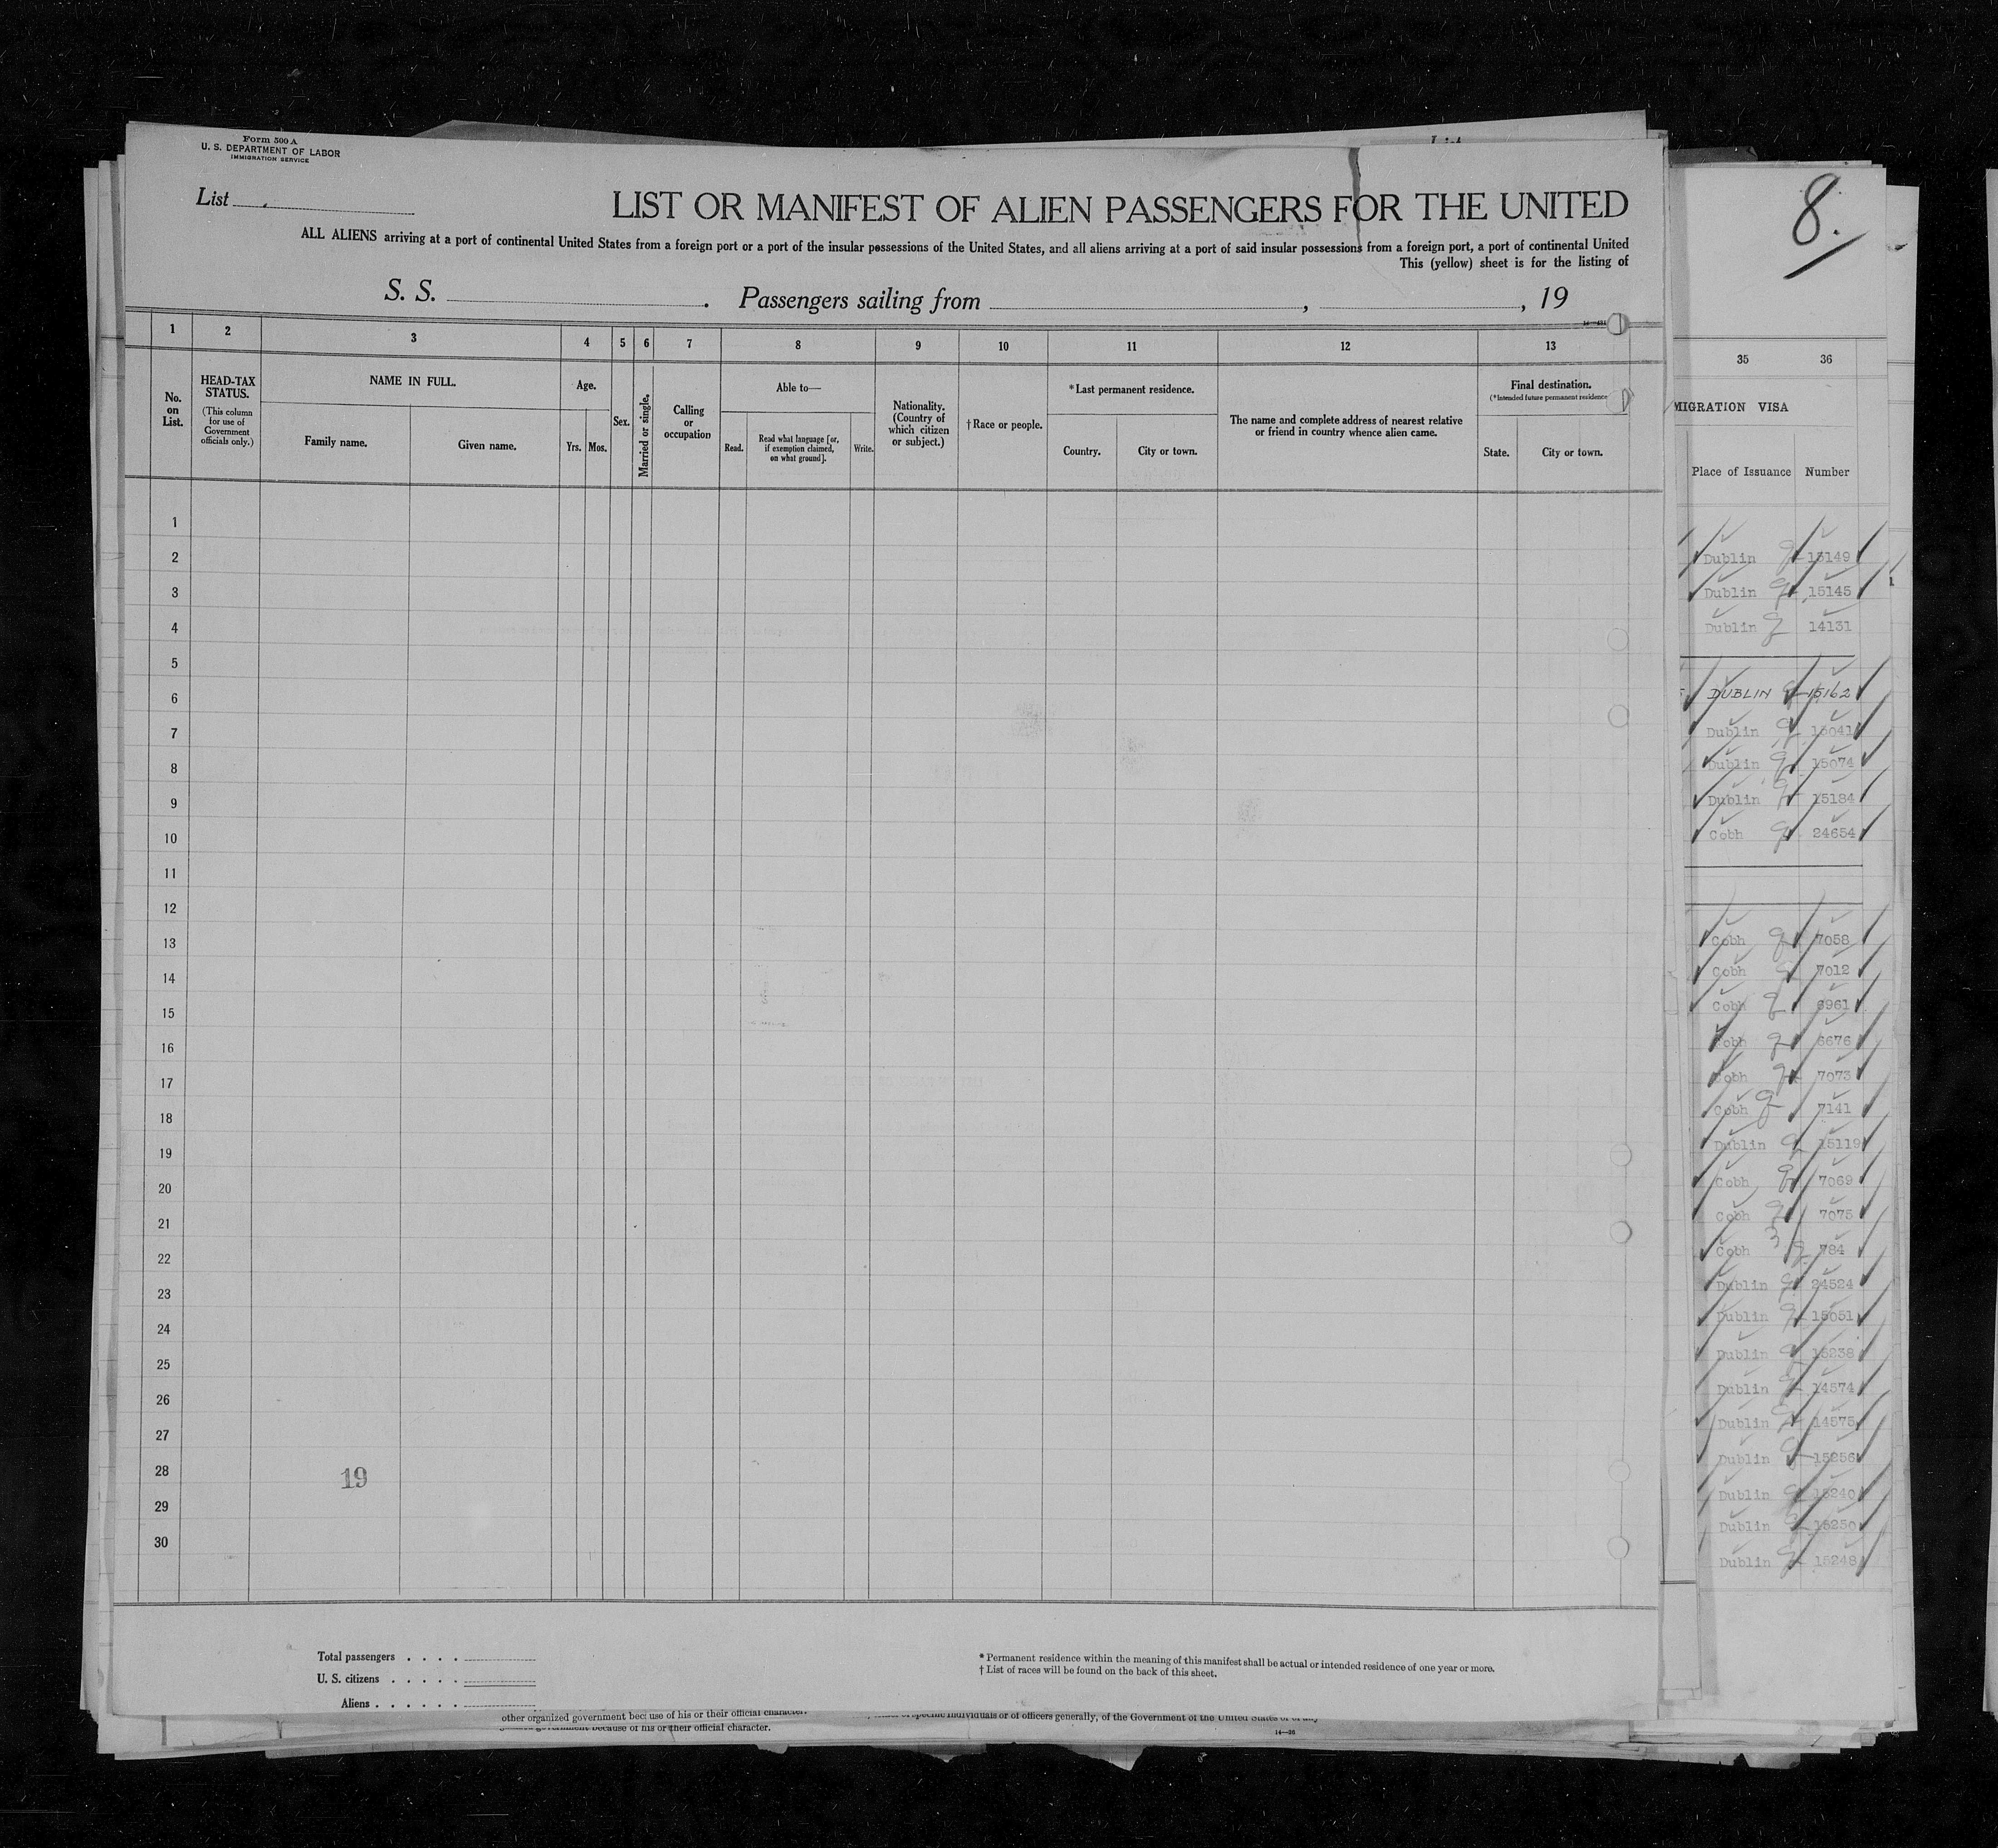 Form 500 A
U. S. DEPARTMENT OF LABOR
IMMIGRATION SERVICE
List
LIST OR MANIFEST OF ALIEN PASSENGERS FOR THE UNITED
ALL ALIENS arriving at a port of continental United States from a foreign port or a port of the insular possessions of the United States, and all aliens arriving at a port of said insular possessions from a foreign port, a port of continental United
This (yellow) sheet is for the listing of
S. S. . Passengers sailing from , , 19
1 2 3 4 5 6 7 8 9 10 11 12 13
No. on List.
HEAD-TAX STATUS.
(This column for use of Government officials only.)
NAME IN FULL.
Family name.
Given name.
Age.
Yrs.
Mos.
Sex.
Married or single.
Calling or occupation
Able to—
Read.
Read what language [or, if exemption claimed, on what ground].
Write.
Nationality. (Country of which citizen or subject.)
†Race or people.
*Last permanent residence.
Country.
City or town.
The name and complete address of nearest relative or friend in country whence alien came.
Final destination.
(*Intended future permanent residence
State.
City or town.
1
2
3
4
5
6
7
8
9
10
11
12
13
14
15
16
17
18
19
20
21
22
23
24
25
26
27
28
19
29
30
Total passengers . . . .
U. S. citizens . . . . .
Aliens . . . . . .
* Permanent residence within the meaning of this manifest shall be actual or intended residence of one year or more.
† List of races will be found on the back of this sheet.
other organized government because of his or their official character.
14—26
8.
35 36
MIGRATION VISA
Place of Issuance Number
Dublin 15149
Dublin 15145
Dublin 14131
DUBLIN 15162
Dublin 15041
Dublin 15074
Dublin 15184
Cobh 24654
Cobh 7058
Cobh 7012
Cobh 6961
Cobh 6676
Cobh 7073
Cobh 7141
Dublin 15119
Cobh 7069
Cobh 7075
Cobh 784
Dublin 24524
Dublin 15051
Dublin 15238
Dublin 14574
Dublin 14575
Dublin 15256
Dublin 15240
Dublin 15250
Dublin 15248